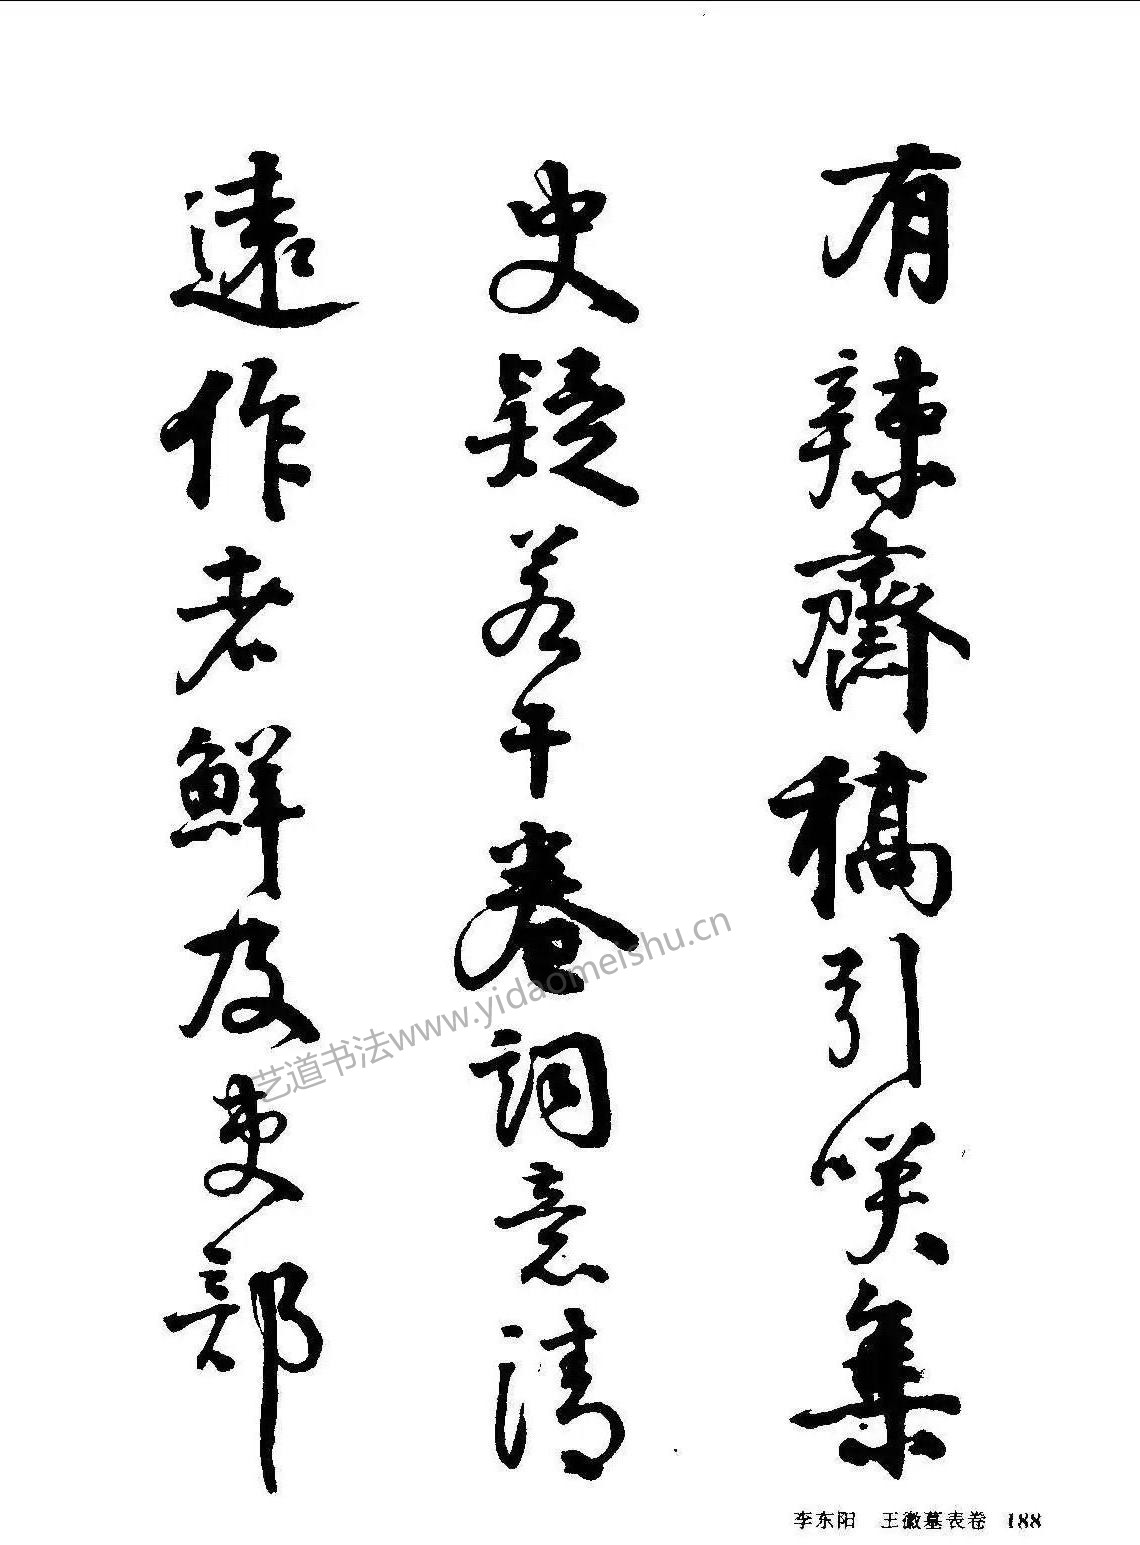 有辣齋稿引咲集
史疑若干卷詞意清
遠作者鮮及吏部
艺道书法www.yidaomeishu.cn
李东阳 王徽墓表卷 188